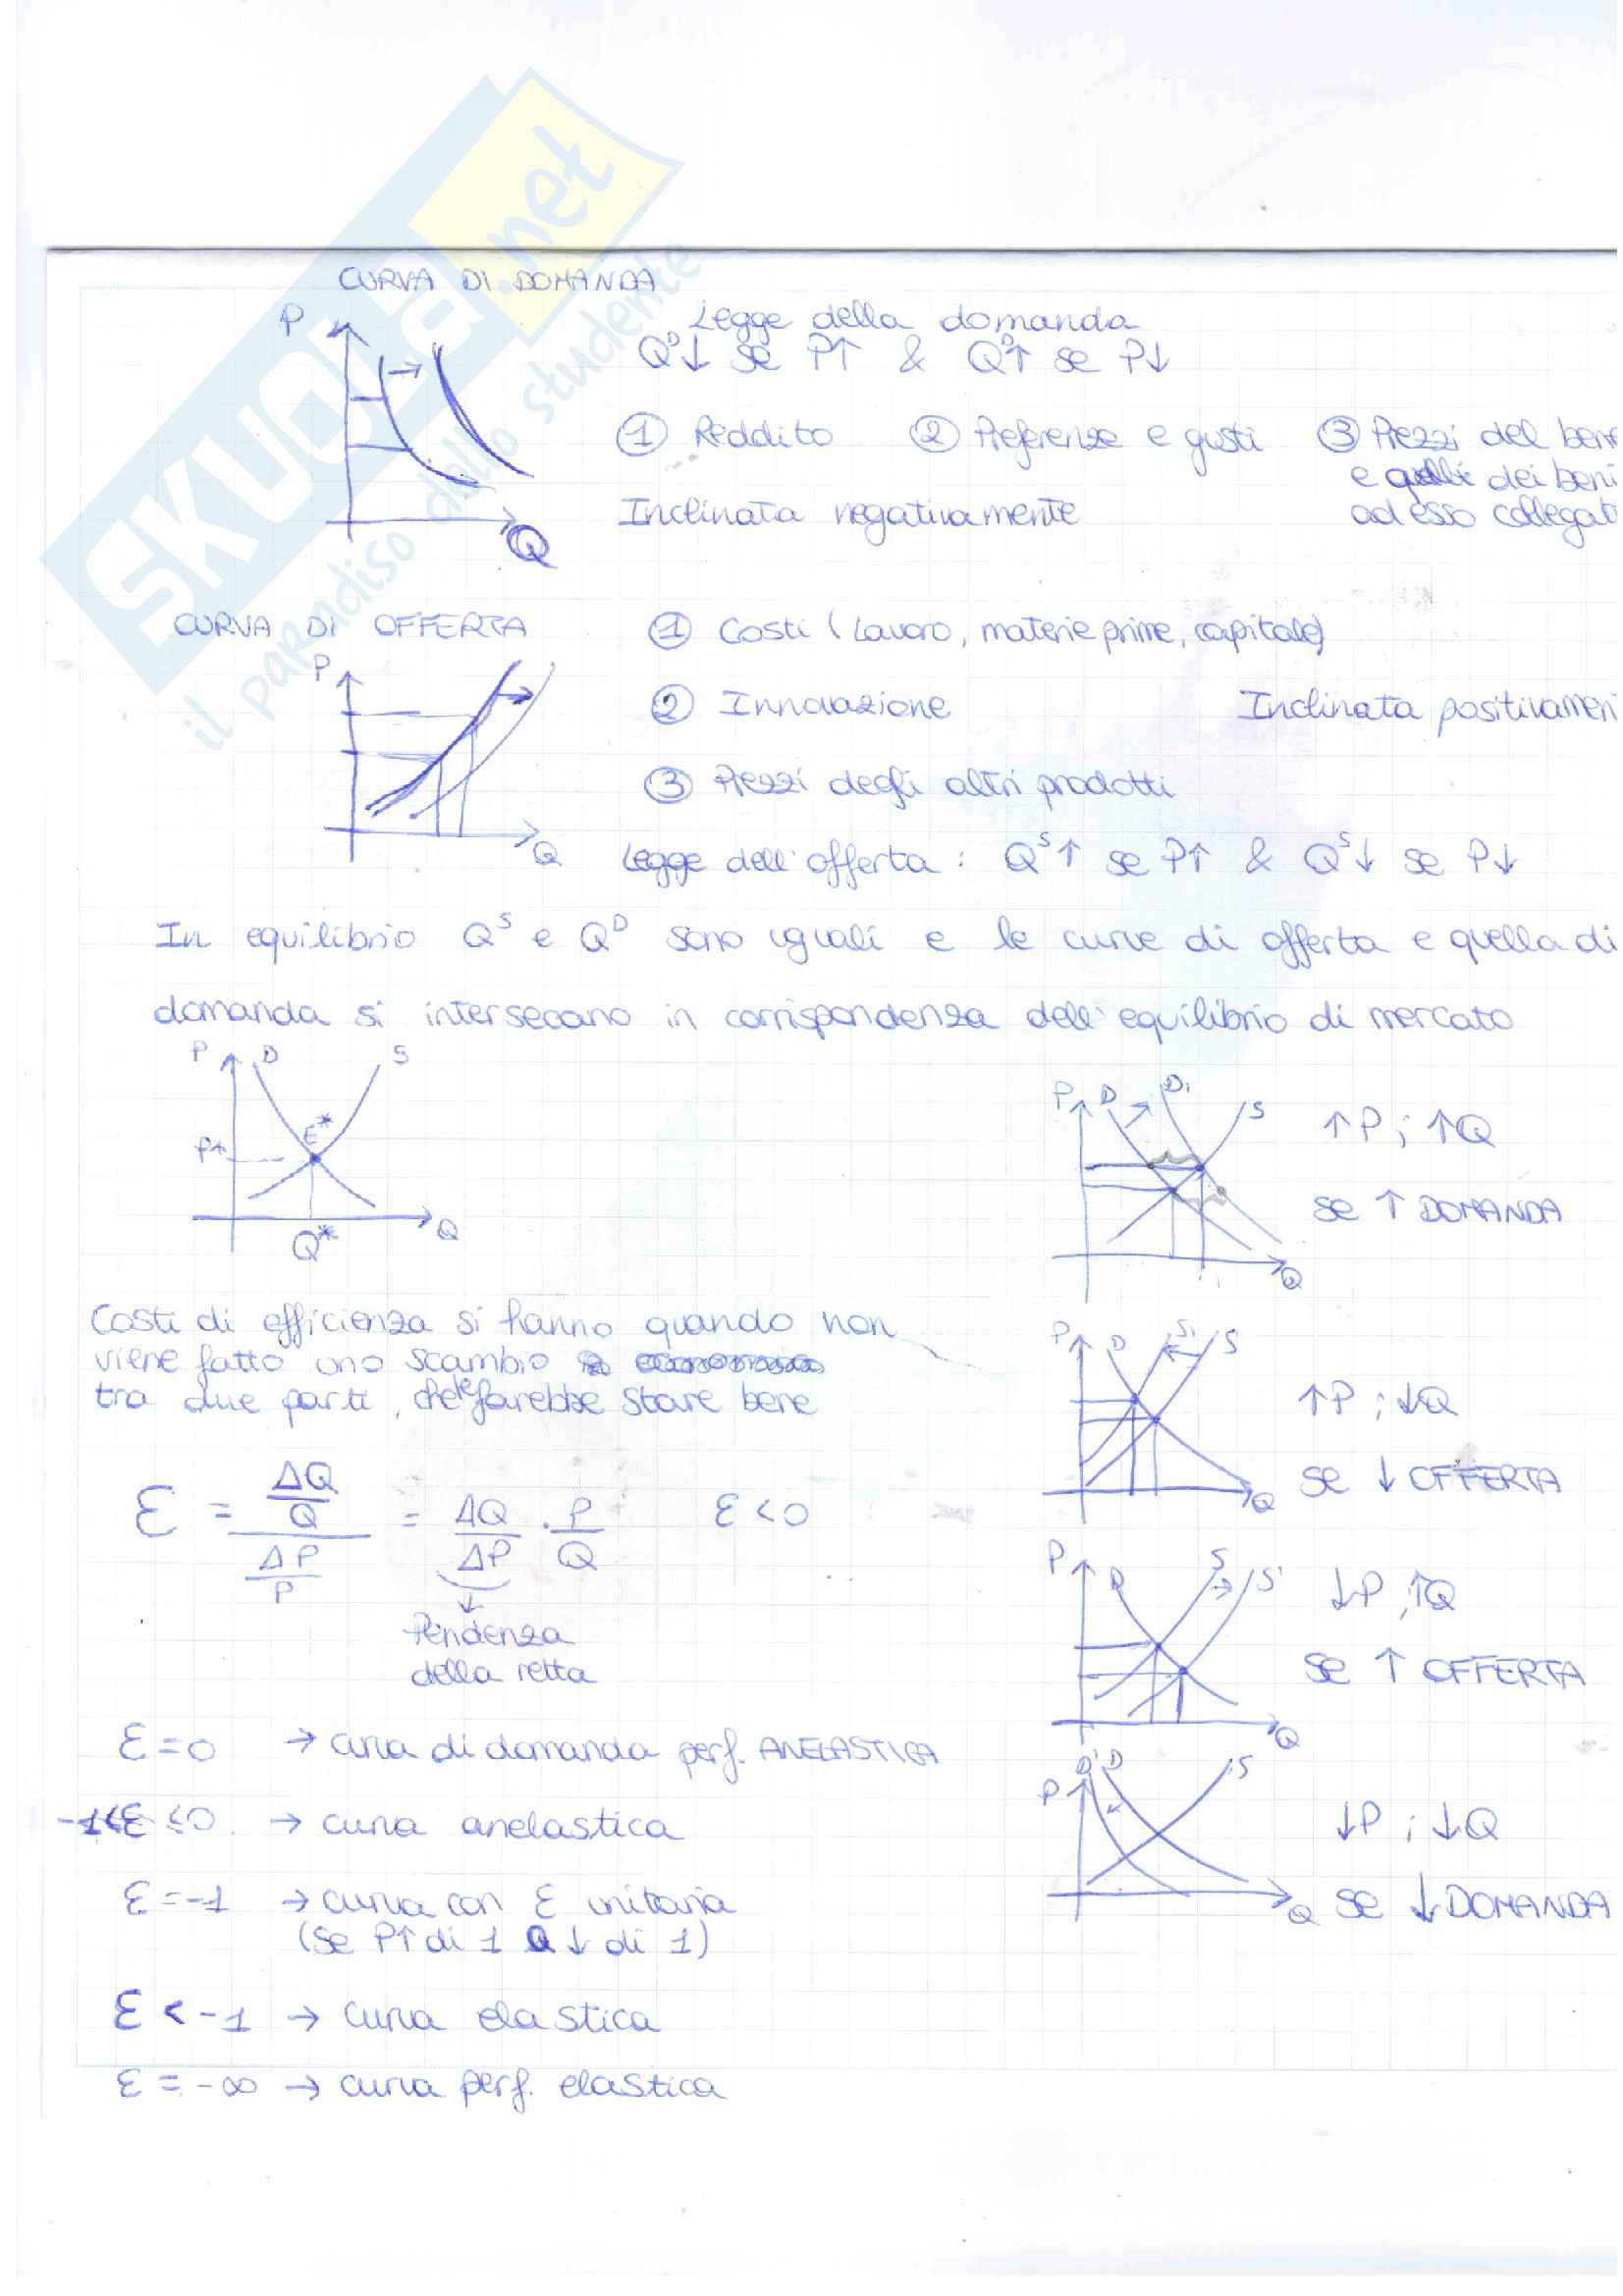 SKUOLA.net
il paradiso dello studente
CURVA DI DOMANDA
P
Q
Legge della domanda
Qᴰ↓ se P↑ & Qᴰ↑ se P↓
① Reddito ② Preferenze e gusti ③ Prezzi del bene
e quelli dei beni
ad esso collegat
Inclinata negativamente
CURVA DI OFFERTA
P
Q
① Costi (Lavoro, materie prime, capitale)
② Innovazione Inclinata positivamen
③ Prezzi degli altri prodotti
Legge dell'offerta: Qˢ↑ se P↑ & Qˢ↓ se P↓
In equilibrio Qˢ e Qᴰ sono uguali e le curve di offerta e quella di
domanda si intersecano in corrispondenza dell'equilibrio di mercato
P D S
E*
P*
Q* Q
P D D₁ S
Q
↑P ; ↑Q
se ↑ DOMANDA
Costi di efficienza si hanno quando non
viene fatto uno scambio
tra due parti, che le farebbe stare bene
P D S₁ S
Q
↑P ; ↓Q
se ↓ OFFERTA
ε = ΔQ/Q / ΔP/P = ΔQ/ΔP · P/Q ε < 0
Pendenza
della retta
P D S S'
Q
↓P ; ↑Q
se ↑ OFFERTA
ε = 0 → curva di domanda perf. ANELASTICA
-1<ε<0 → curva anelastica
ε = -1 → curva con ε unitaria
(se P↑ di 1 Q↓ di 1)
ε < -1 → curva elastica
ε = -∞ → curva perf. elastica
P D' D S
Q
↓P ; ↓Q
se ↓ DOMANDA